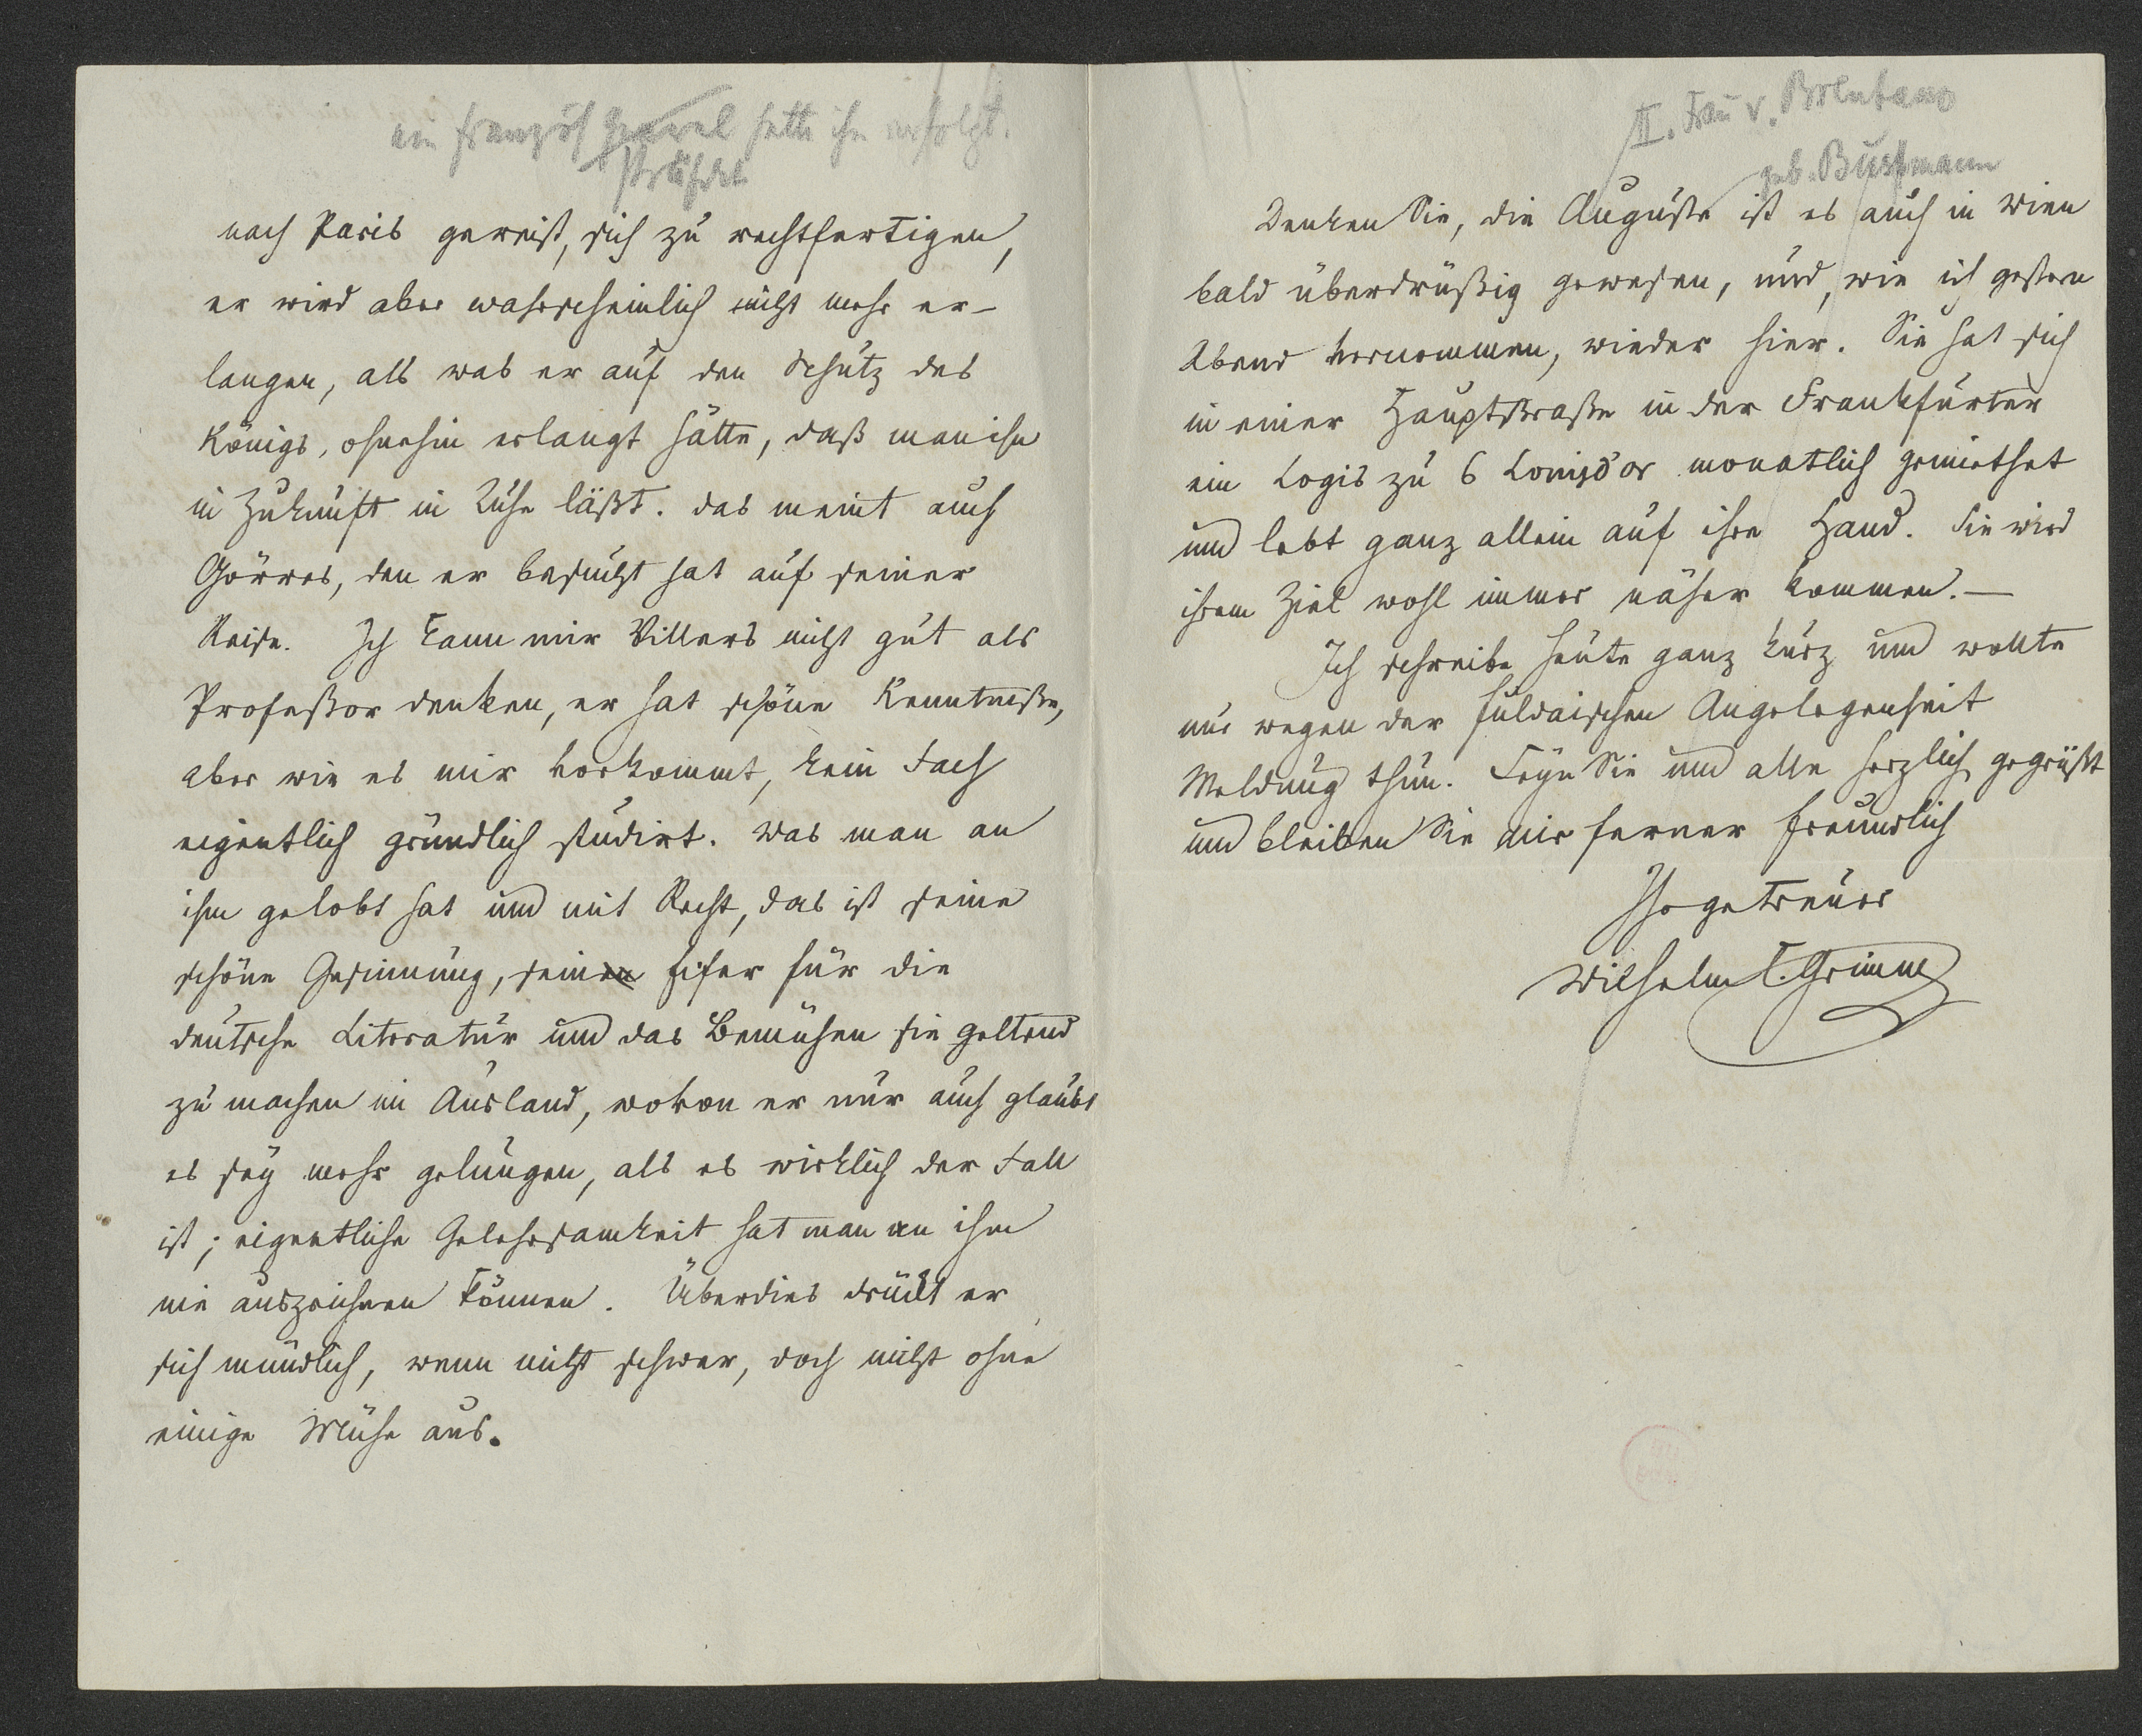 ein französ General hatte ihn verfolgt.
Präfekt
nach Paris gereist, sich zu rechtfertigen,
er wird aber wahrscheinlich nicht mehr er-
langen, als was er auf den Schutz des
Königs, ohnehin erlangt hätte, daß man ihn
in Zukunft in Ruhe läßt. das meint auch
Görres, den er besucht hat auf seiner
Reise. Ich kann mir Villers nicht gut als
Profeßor denken, er hat schöne Kenntniße,
aber wie es mir vorkommt, kein Fach
eigentlich gründlich studirt. Was man an
ihm gelobt hat und mit Recht, das ist seine
schöne Gesinnung, seinen Eifer für die
deutsche Literatur und das Bemühen sie geltend
zu machen im Ausland, wovon er nur auch glaubt
es sey mehr gelungen, als es wirklich der Fall
ist; eigentliche Gelehrsamkeit hat man an ihm
nie auszeichnen können. Überdies drückt er
sich mündlich, wenn nicht schwer, doch nicht ohne
einige Mühe aus.
II. Frau v. Brentano
geb. Bußmann
Denken Sie, die Auguste ist es auch in Wien
bald überdrüßig gewesen, und, wie ich gestern
Abend vernommen, wieder hier. Sie hat sich
in einer Hauptstraße in der Frankfurter
ein Logis zu 6 Louisd'or monatlich gemiethet
und lebt ganz allein auf ihre Hand. Sie wird
ihrem Ziel wohl immer näher kommen. —
Ich schreibe heute ganz kurz und wollte
nur wegen der fuldaischen Angelegenheit
Meldung thun. Seyn Sie und alle herzlich gegrüßt
und bleiben Sie mir ferner freundlich
Ihr getreuer
Wilhelm C. Grimm